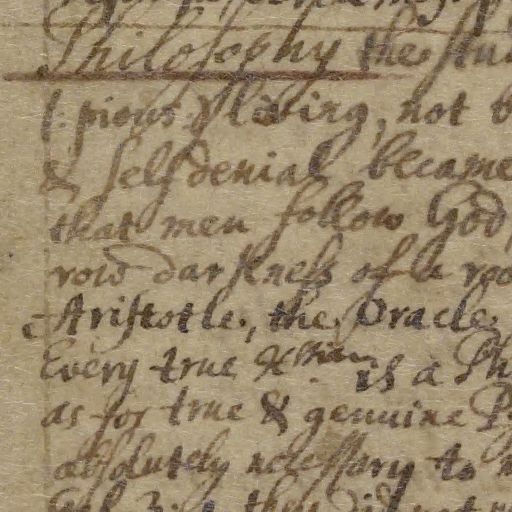 Philosophy the stu
(: pious :) living, not
& self denial became
that men follow God,
row darkness of a roo
Aristotle, the Oracle
Every true Xtian is a Ph
as for true & genuine P
absolutely necessary to
they did not